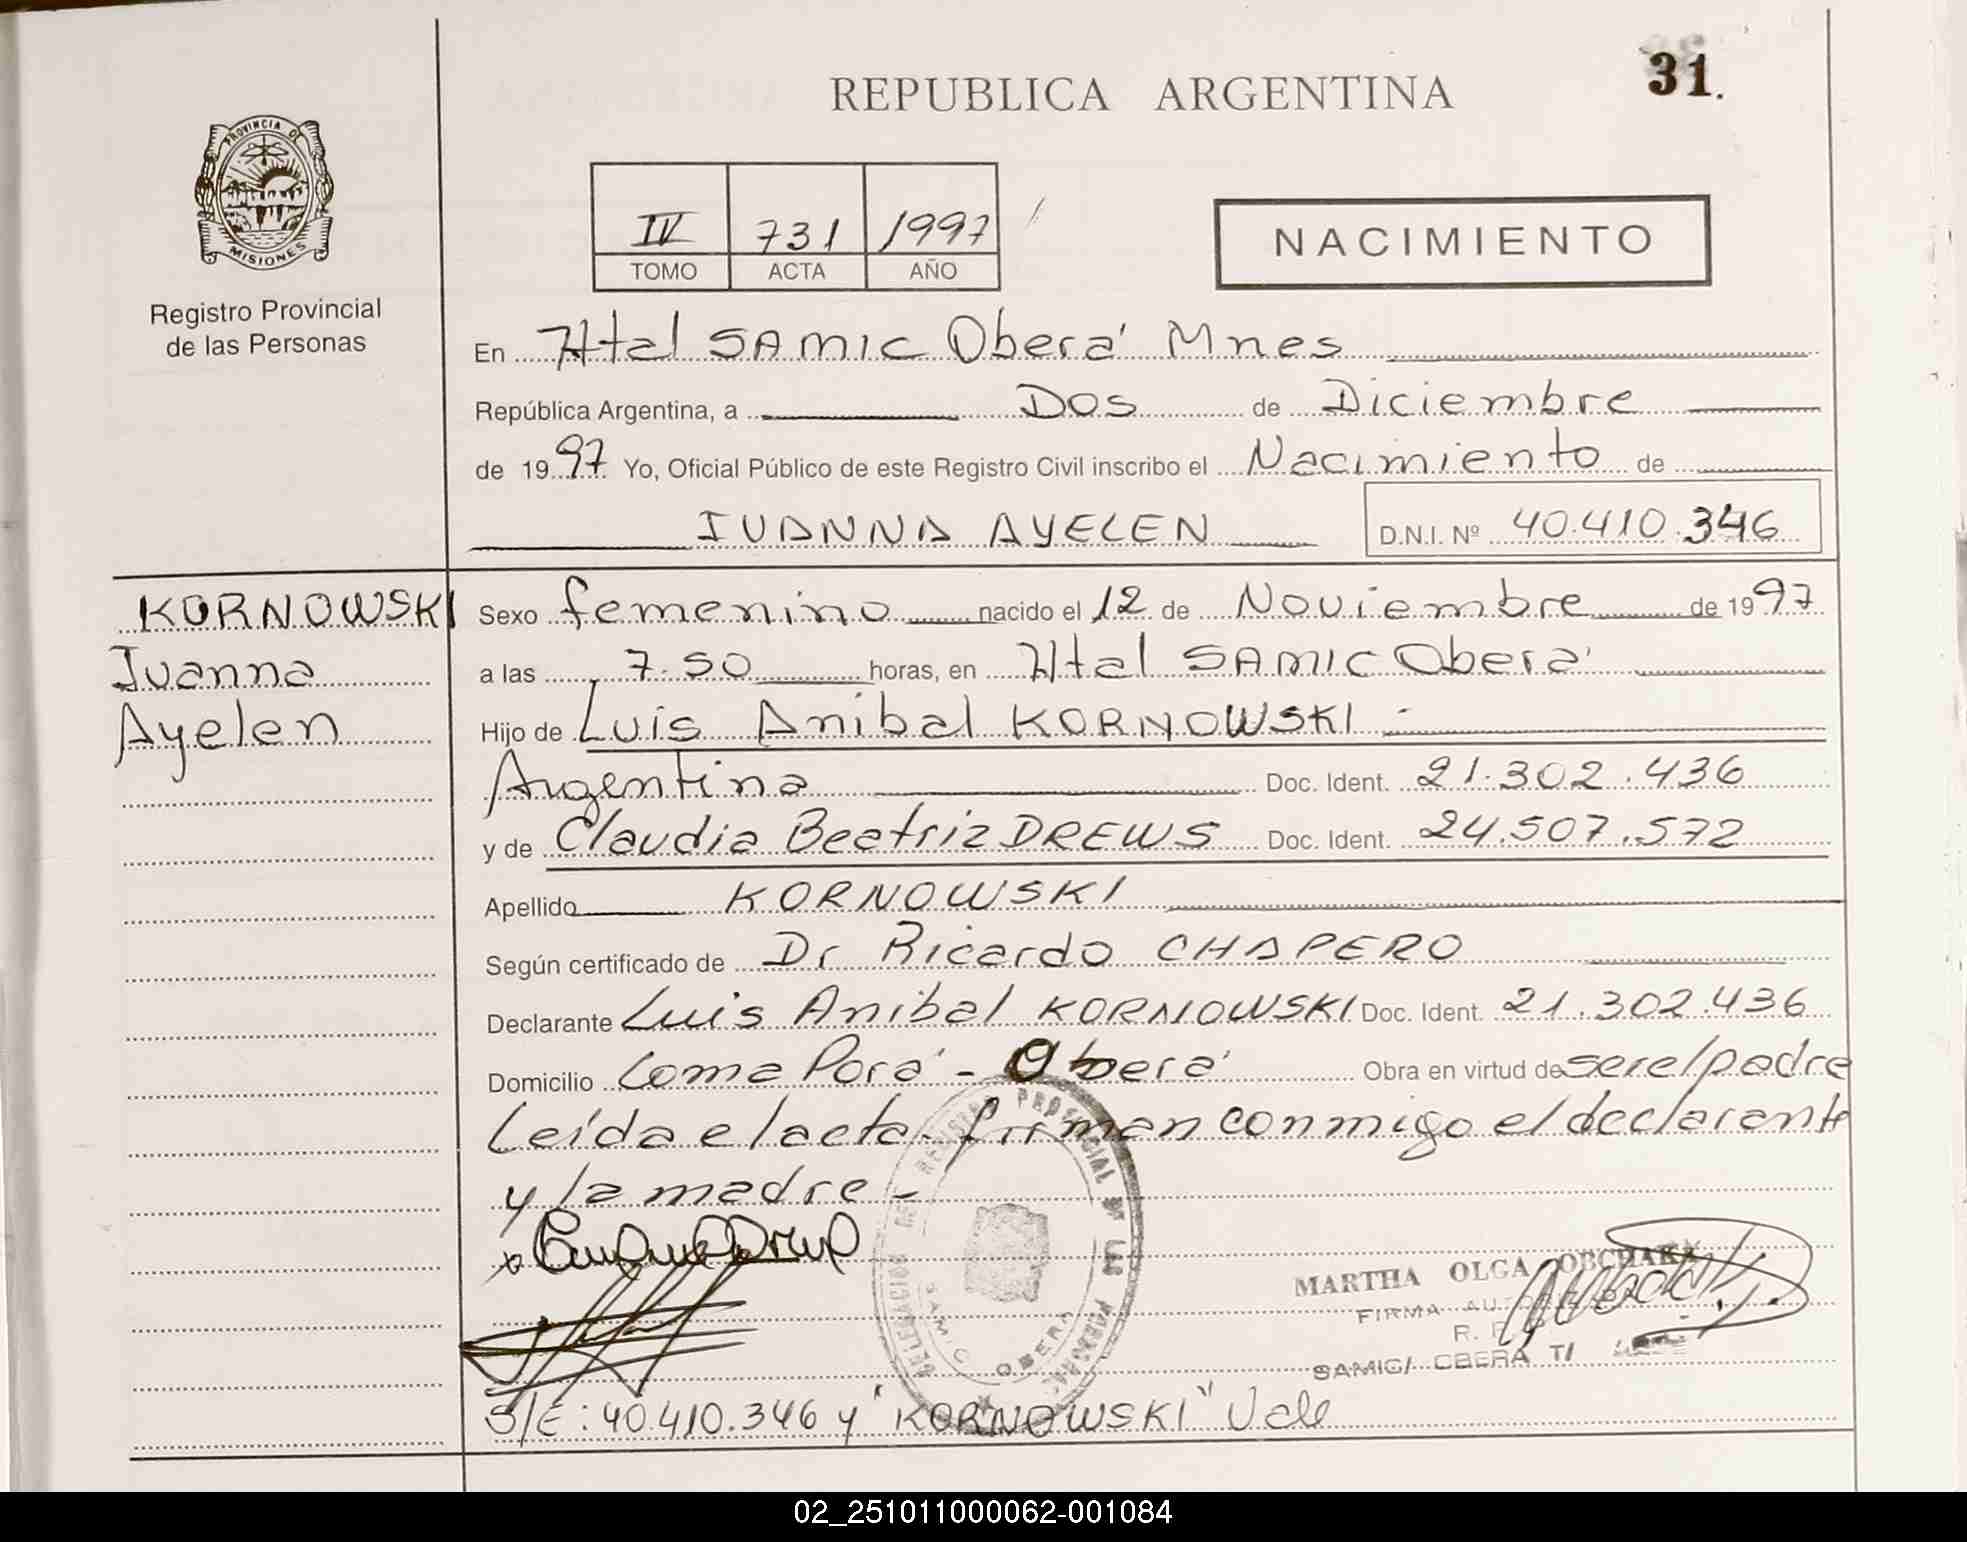 REPUBLICA ARGENTINA
31.
PROVINCIA DE
MISIONES
Registro Provincial
de las Personas
IV 731 1997
TOMO ACTA AÑO
NACIMIENTO
En Htal SAMIC Oberá Mnes
República Argentina, a Dos de Diciembre
de 1997 Yo, Oficial Público de este Registro Civil inscribo el Nacimiento de
IVANNA AYELEN D.N.I. Nº 40.410.346
KORNOWSKI
Ivanna
Ayelen
Sexo femenino nacido el 12 de Noviembre de 1997
a las 7.50 horas, en Htal SAMIC Oberá
Hijo de Luis Anibal KORNOWSKI
Argentina Doc. Ident. 21.302.436
y de Claudia Beatriz DREWS Doc. Ident. 24.507.572
Apellido KORNOWSKI
Según certificado de Dr Ricardo CHAPERO
Declarante Luis Anibal KORNOWSKI Doc. Ident. 21.302.436
Domicilio Loma Porá - Oberá Obra en virtud de ser el padre
Leída el acta firman conmigo el declarante
y la madre -
DELEGACION DEL REGISTRO PROVINCIAL DE LAS PERSONAS
SAMIC OBERA
MARTHA OLGA
FIRMA
SAMIC/ OBERA
S/E: 40.410.346 y "KORNOWSKI" Vale
02_251011000062-001084